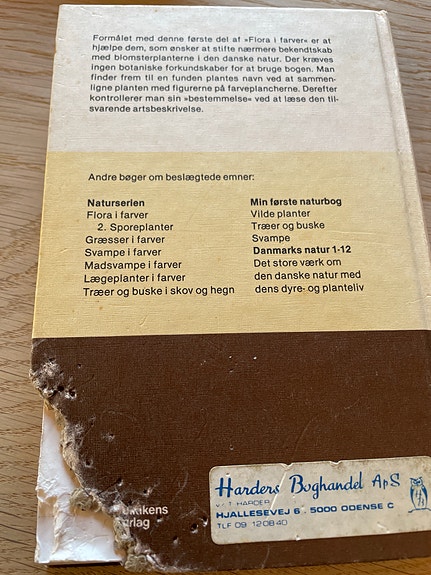 Formålet med denne første del af »Flora i farver« er at
hjælpe dem, som ønsker at stifte nærmere bekendtskab
med blomsterplanterne i den danske natur. Der kræves
ingen botaniske forkundskaber for at bruge bogen. Man
finder frem til en funden plantes navn ved at sammen-
ligne planten med figurerne på farveplancherne. Derefter
kontrollerer man sin »bestemmelse« ved at læse den til-
svarende artsbeskrivelse.
Andre bøger om beslægtede emner:
Naturserien
Flora i farver
2. Sporeplanter
Græsser i farver
Svampe i farver
Madsvampe i farver
Lægeplanter i farver
Træer og buske i skov og hegn
Min første naturbog
Vilde planter
Træer og buske
Svampe
Danmarks natur 1-12
Det store værk om
den danske natur med
dens dyre- og planteliv
Harders Boghandel ApS
v. T. HARDER
HJALLESEVEJ 6 . 5000 ODENSE C
TLF 09 12 08 40